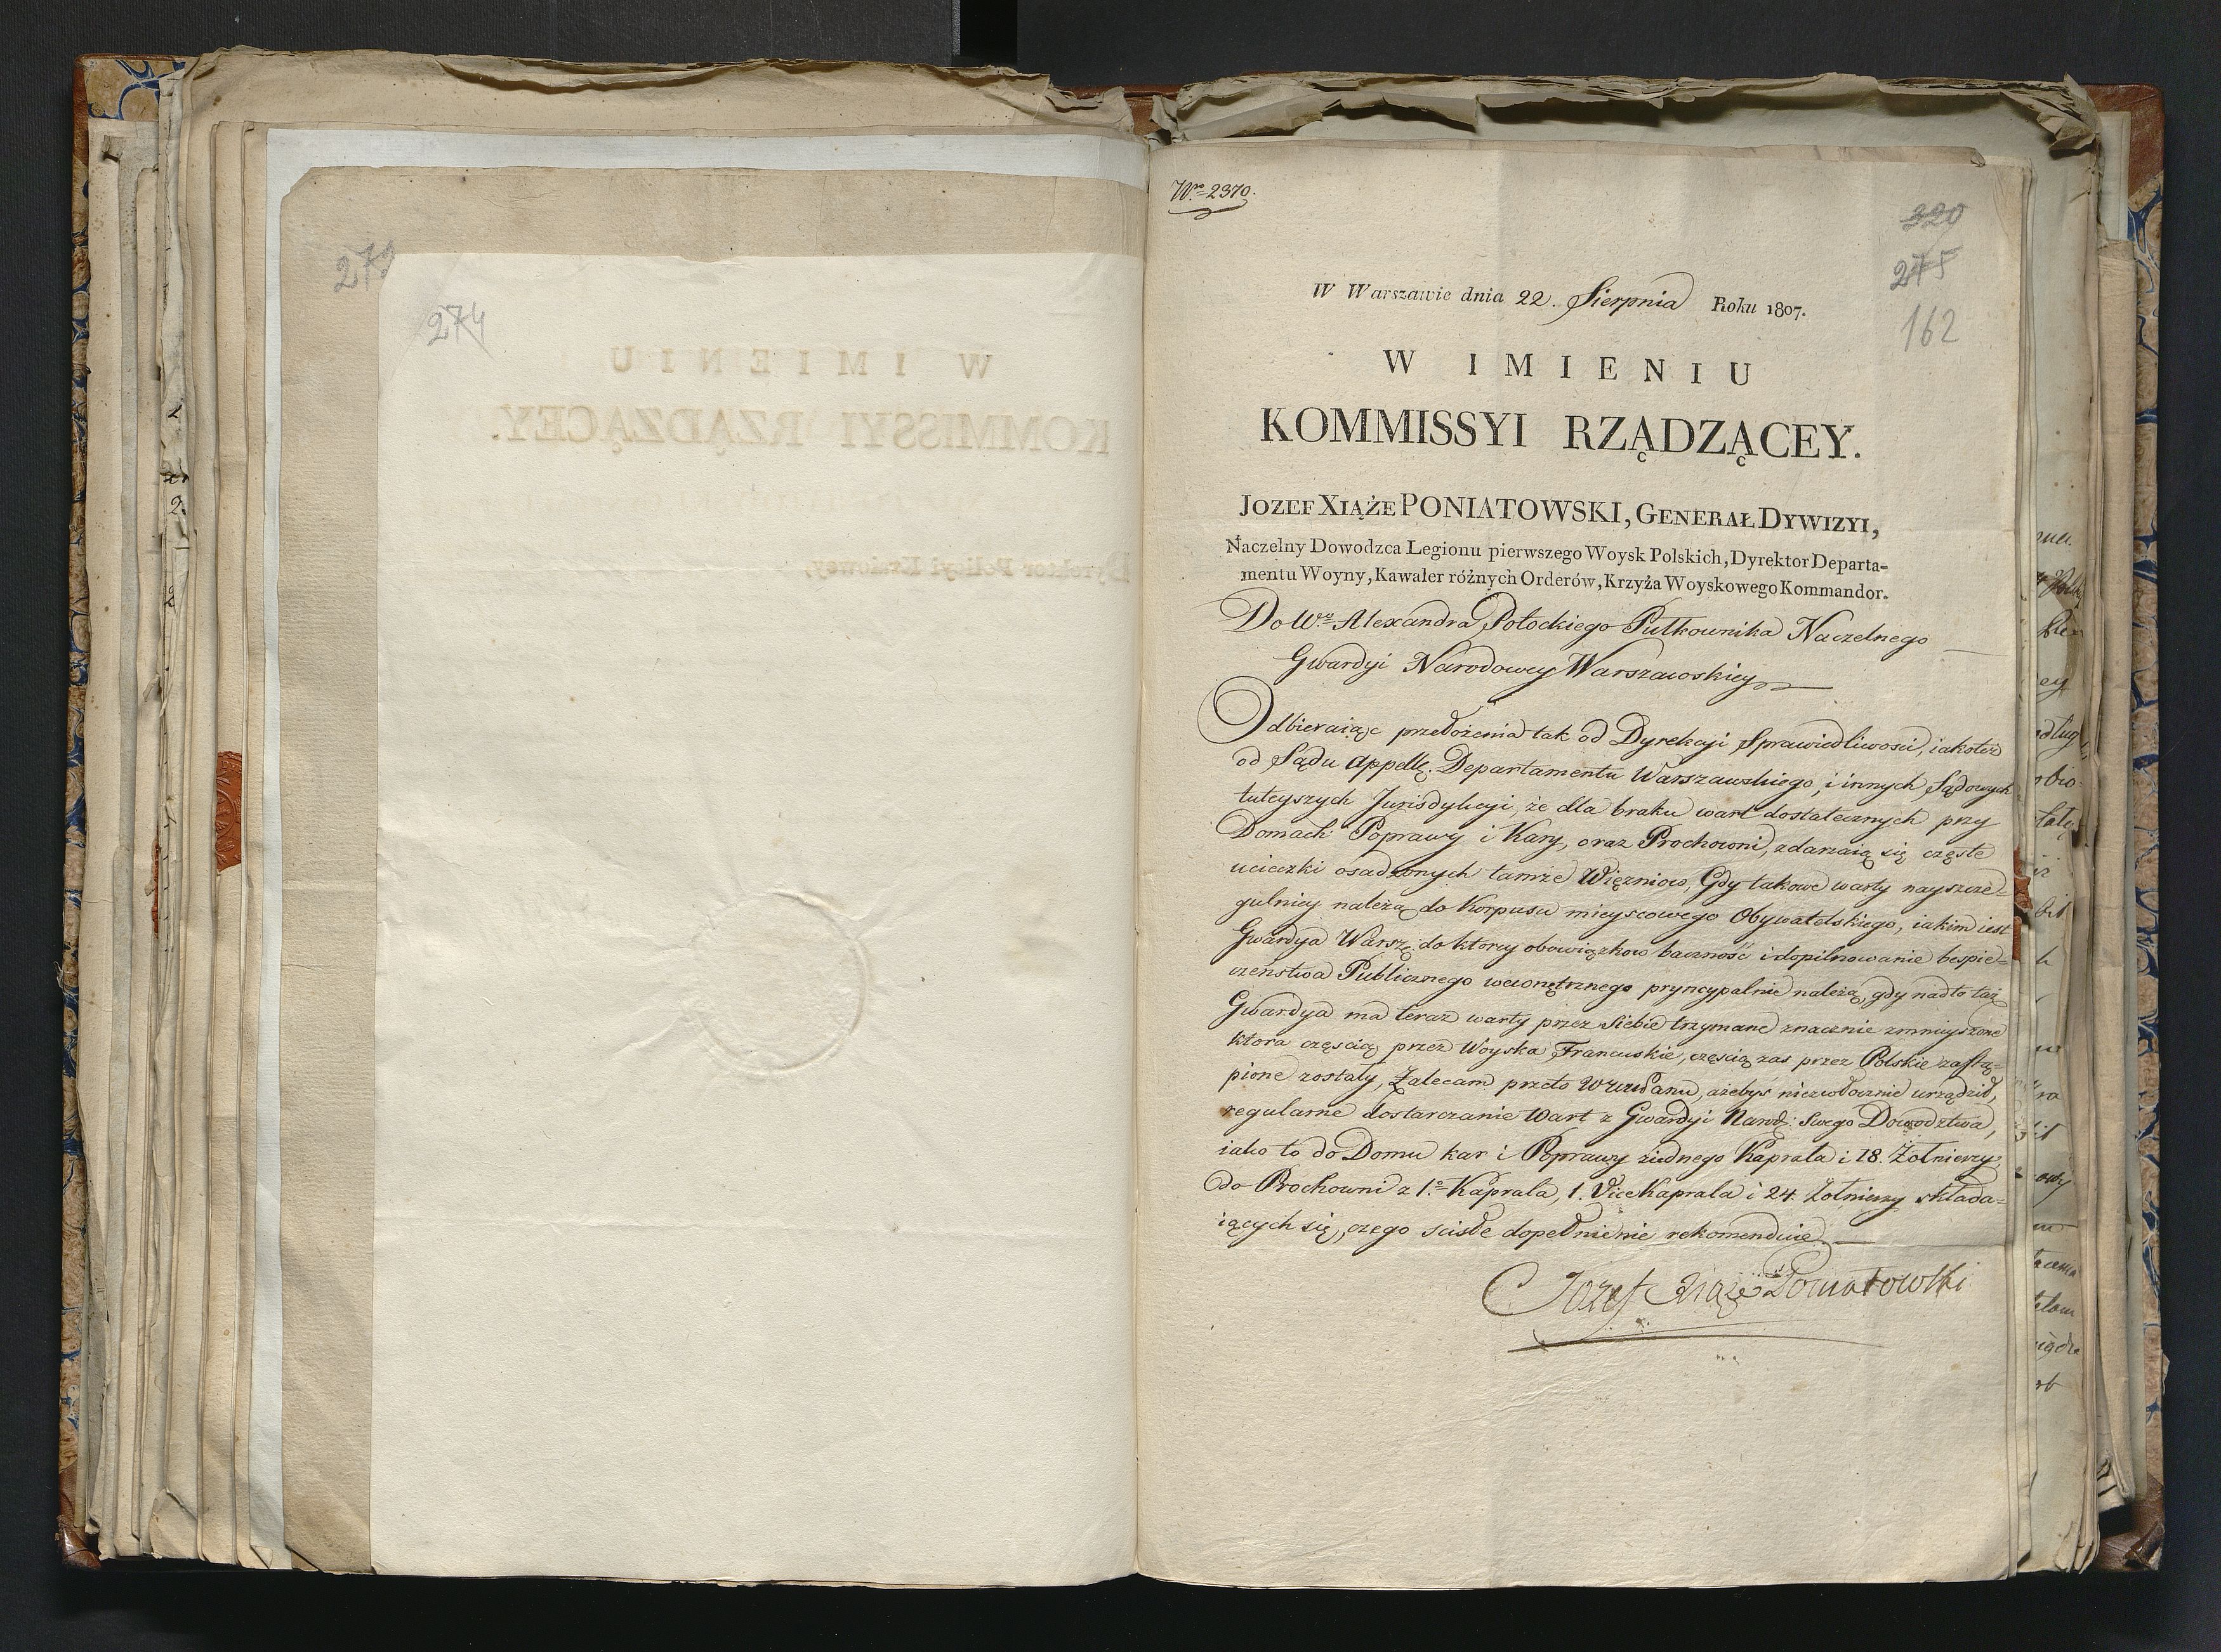 279
274
W IMIENIU
KOMMISSYI RZĄDZĄCEY.
Dyrektor Policyi Kraiowey,
Nro 2370.
320
275
162
W Warszawie dnia 22. Sierpnia Roku 1807.
W IMIENIU
KOMMISSYI RZĄDZĄCEY.
JOZEF XIĄŻE PONIATOWSKI, GENERAŁ DYWIZYI,
Naczelny Dowodzca Legionu pierwszego Woysk Polskich, Dyrektor Departa-
mentu Woyny, Kawaler różnych Orderów, Krzyża Woyskowego Kommandor.
Do Wo Alexandra Potockiego Pułkownika Naczelnego
Gwardyi Narodowey Warszawskiey
Odbieraiąc przełożenia tak od Dyrekcyi Sprawiedliwości, iakoteż
od Sądu Appell. Departamentu Warszawskiego, i innych Sądowych
tuteyszych Jurisdykcyi, że dla braku wart dostatecznych przy
Domach Poprawy i Kary, oraz Prochowni, zdarzaią się częste
ucieczki osadzonych tamże Więzniow, Gdy takowe warty nayszcze-
gulniey należą do Korpusu mieyscowego Obywatelskiego, iakim iest
Gwardya Warsz: do ktorey obowiązkow baczność i dopilnowanie bespie-
czeństwa Publicznego wewnętrznego pryncypalnie należą, gdy nadto taż
Gwardya ma teraz warty przez siebie trzymane znacznie zmnieyszone
ktora częscią przez Woyska Francuskie, częscią zas przez Polskie zastą-
pione zostały, Zalecam przeto WWPanu, ażebys niezwłocznie urządził,
regularne dostarczanie Wart z Gwardyi Narod: swego Dowodztwa,
iako to do Domu kar i Poprawy ziednego Kaprala i 18. Żołnierzy,
do Prochowni z 1.o Kaprala, 1. Vice Kaprala i 24. Żołnierzy składa-
iących się, czego scisłe dopełnienie rekomenduie.
Jozef Xiąże Poniatowski